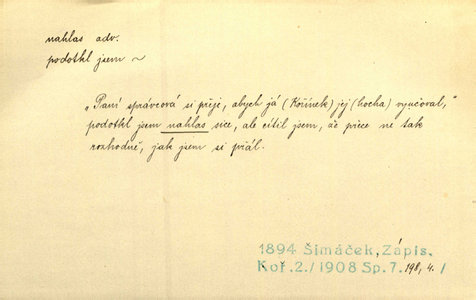 nahlas adv.
podotkl jsem ~
„Paní správcová si přeje, abych já (Kořínek) jej (hocha) vyučoval,"
podotkl jsem nahlas sice, ale cítil jsem, že přece ne tak
rozhodně, jak jsem si přál.
1894 Šimáček, Zápis.
Koř.2./1908 Sp.7. 198, 4./